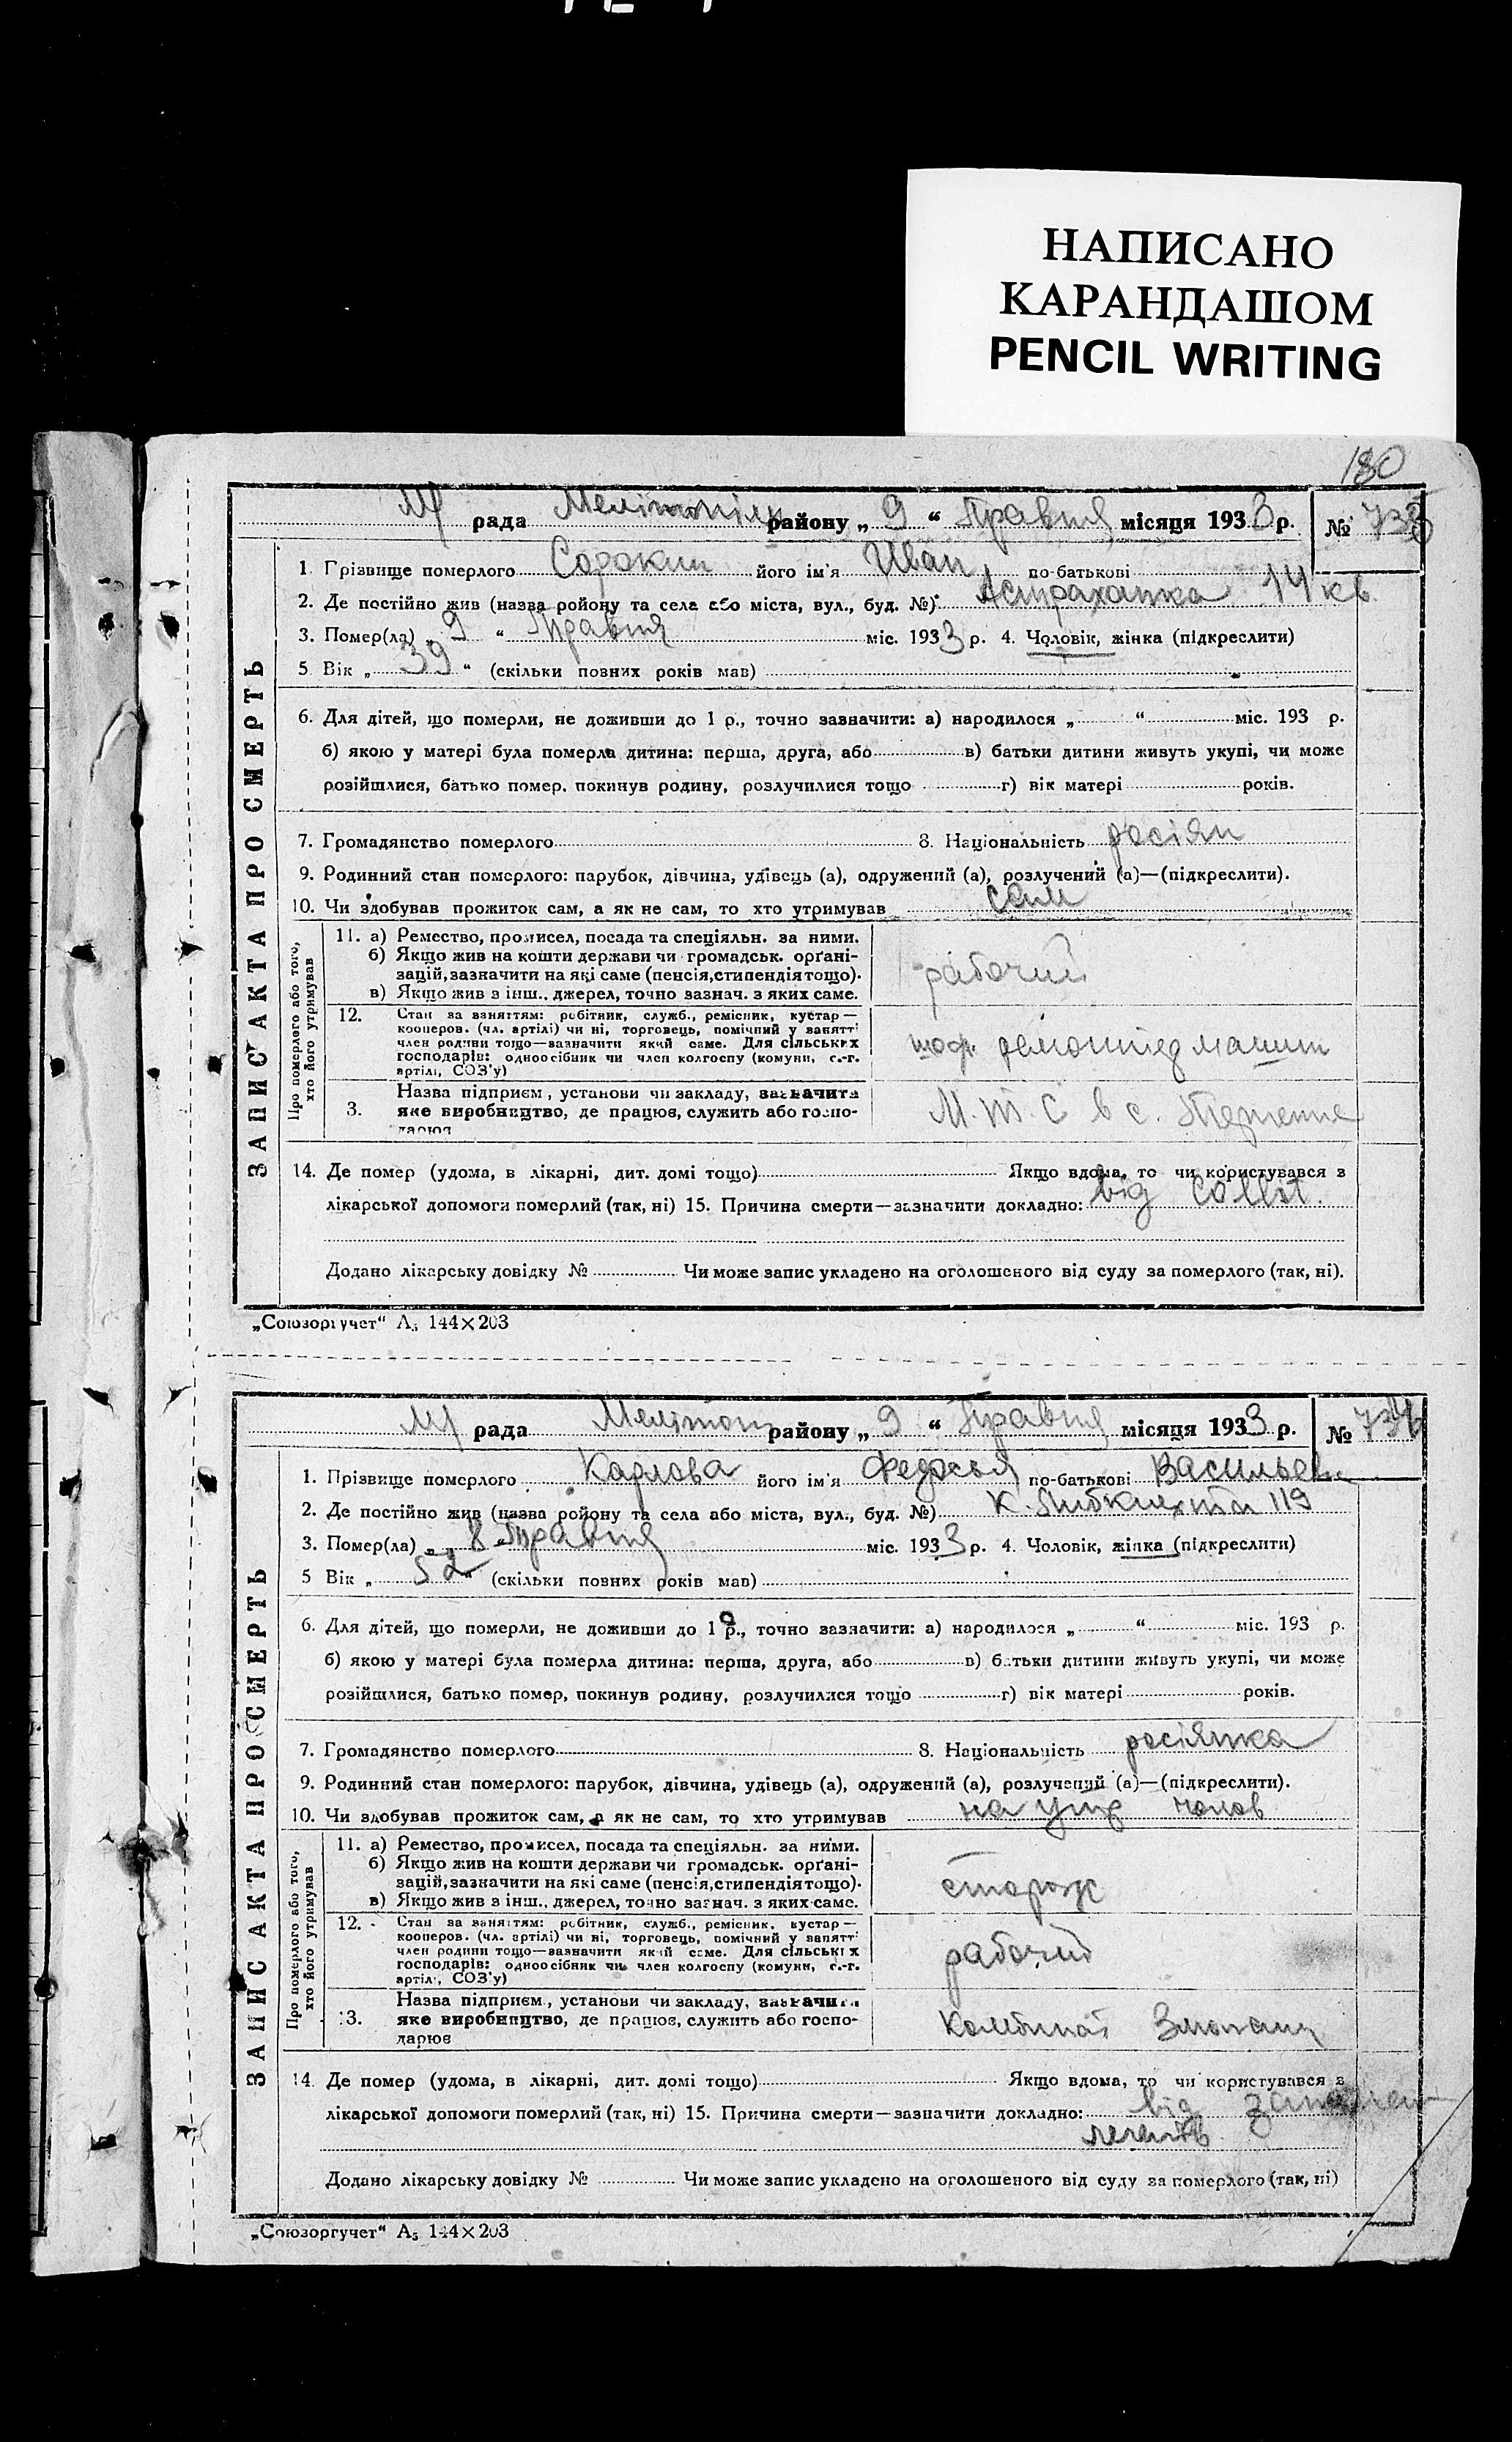 НАПИСАНО
КАРАНДАШОМ
PENCIL WRITING
180
ЗАПИС АКТА ПРО СМЕРТЬ
М/ рада Мелітопільк району „ 9 “ Травня місяця 1933 р. №
1. Прізвище померлого Сорокин його ім'я Иван по-батькові
2. Де постійно жив (назва району та села або міста, вул., буд. №) Астраханка 14 кв
3. Помер(ла) „ 9 “ Травня міс. 1933 р. 4. Чоловік, жінка (підкреслити)
5. Вік „ 39 “ (скільки повних років мав)
6. Для дітей, що померли, не доживши до 1 р., точно зазначити: а) народилося „ “ міс. 193 р.
б) якою у матері була померла дитина: перша, друга, або в) батьки дитини живуть укупі, чи може
розійшлися, батько помер, покинув родину, розлучилися тощо г) вік матері років.
7. Громадянство померлого 8. Національність росіян
9. Родинний стан померлого: парубок, дівчина, удівець (а), одружений (а), розлучений (а)—(підкреслити).
10. Чи здобував прожиток сам, а як не сам, то хто утримував сам
Про померлого або того, хто його утримував
11. а) Ремество, промисел, посада та спеціяльн. за ними.
б) Якщо жив на кошти держави чи громадськ. орґані-
зацій, зазначити на які саме (пенсія, стипендія тощо).
в) Якщо жив з інш., джерел, точно зазнач. з яких саме.
рабочий
12. Стан за заняттям: робітник, служб., ремісник, кустар—
кооперов. (чл. артілі) чи ні, торговець, помічний у занятті
член родини тощо—зазначити який саме. Для сільських
господарів: одноосібник чи член колгоспу (комуни, с.-г.
артілі, СОЗ'у)
машин
3. Назва підприєм., установи чи закладу, зазначити
яке виробництво, де працює, служить або госпо-
дарює
М.Т.С в с.
14. Де помер (удома, в лікарні, дит. домі тощо) Якщо вдома, то чи користувався з
лікарської допомоги померлий (так, ні) 15. Причина смерти—зазначити докладно: від
Додано лікарську довідку № Чи може запис укладено на оголошеного від суду за померлого (так, ні).
„Союзоргучет“ А5 144×203
ЗАПИС АКТА ПРО СМЕРТЬ
М/ рада Мелітоп району „ 9 “ Травня місяця 1933 р. № 734
1. Прізвище померлого Карлова його ім'я по-батькові Васильевн
2. Де постійно жив (назва району та села або міста, вул., буд. №) К. Лібкнехта 119
3. Помер(ла) „ 8 Травня міс. 1933 р. 4. Чоловік, жінка (підкреслити)
5 Вік „ 52 “ (скільки повних років мав)
6. Для дітей, що померли, не доживши до 1 р., точно зазначити: а) народилося „ “ міс. 193 р.
б) якою у матері була померла дитина: перша, друга, або в) батьки дитини живуть укупі, чи може
розійшлися, батько помер, покинув родину, розлучилися тощо г) вік матері років.
7. Громадянство померлого 8. Національність росіянка
9. Родинний стан померлого: парубок, дівчина, удівець (а), одружений (а), розлучений (а)—(підкреслити).
10. Чи здобував прожиток сам, а як не сам, то хто утримував на утр чолов
Про померлого або того, хто його утримував
11. а) Ремество, промисел, посада та спеціяльн. за ними.
б) Якщо жив на кошти держави чи громадськ. орґані-
зацій, зазначити на які саме (пенсія, стипендія тощо).
в) Якщо жив з інш., джерел, точно зазнач. з яких саме.
сторож
12. Стан за заняттям: робітник, служб., ремісник, кустар—
кооперов. (чл. артілі) чи ні, торговець, помічний у занятті
член родини тощо—зазначити який саме. Для сільських
господарів: одноосібник чи член колгоспу (комуни, с.-г.
артілі, СОЗ'у)
рабочий
13. Назва підприєм., установи чи закладу, зазначити
яке виробництво, де працює, служить або госпо-
дарює
Комбінат
14. Де помер (удома, в лікарні, дит. домі тощо) Якщо вдома, то чи користувався з
лікарської допомоги померлий (так, ні) 15. Причина смерти—зазначити докладно: від
легенів
Додано лікарську довідку № Чи може запис укладено на оголошеного від суду за померлого (так, ні)
„Союзоргучет“ А5 144×203